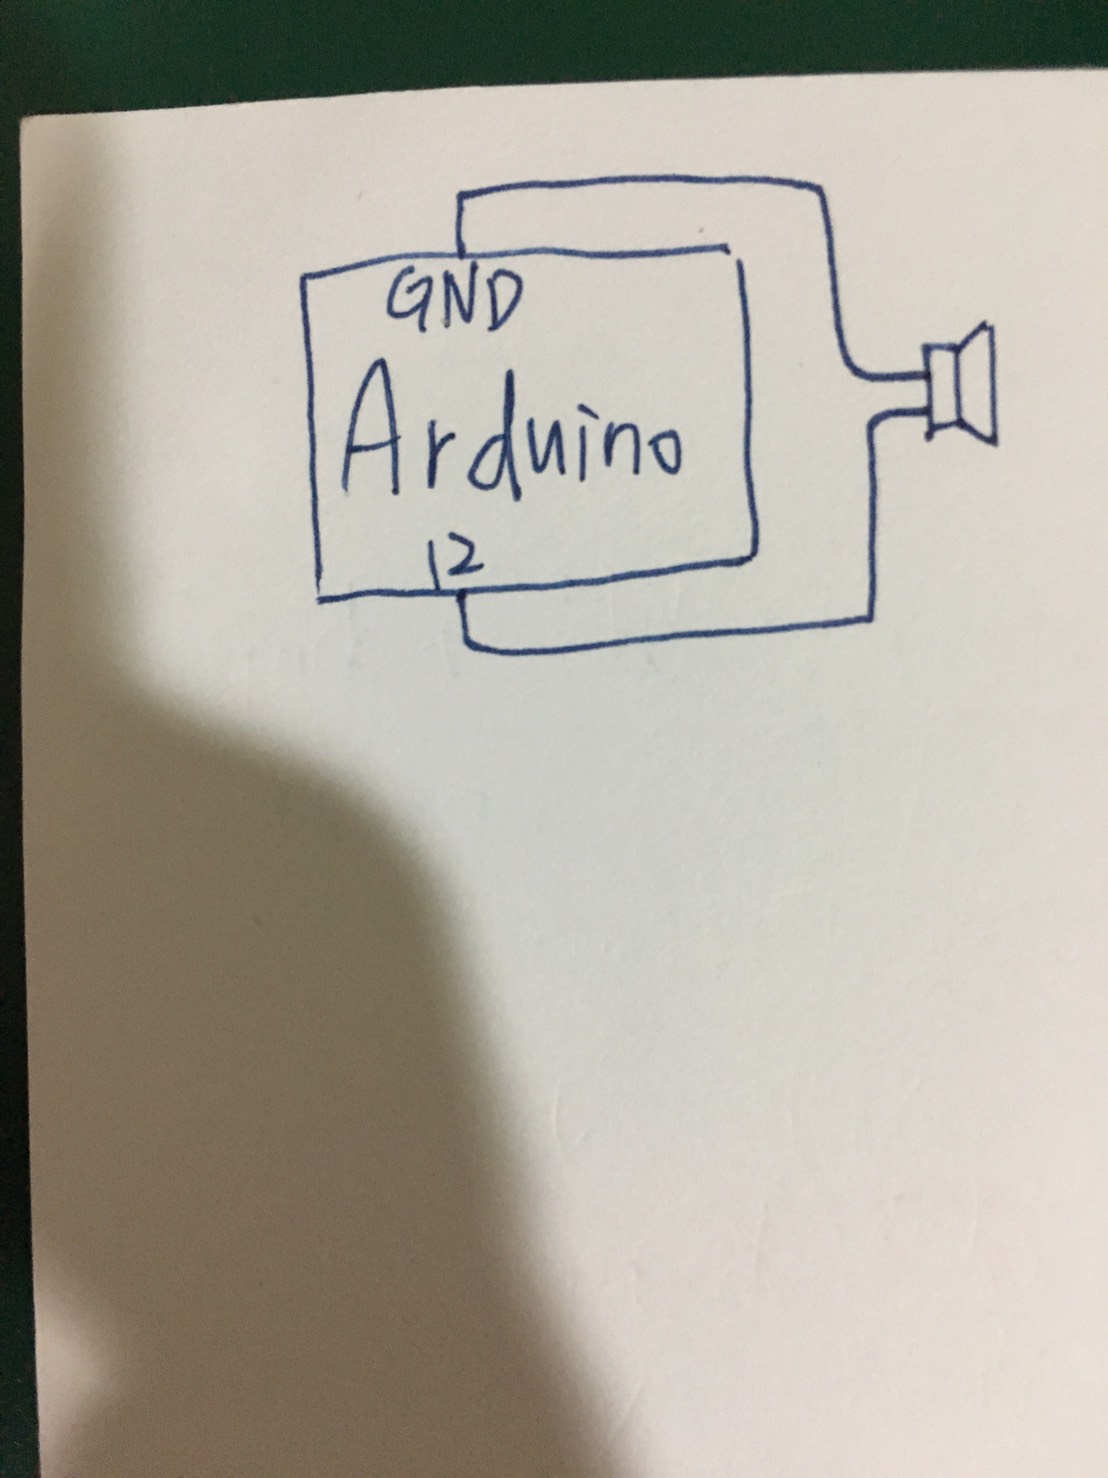 GND
Arduino
12